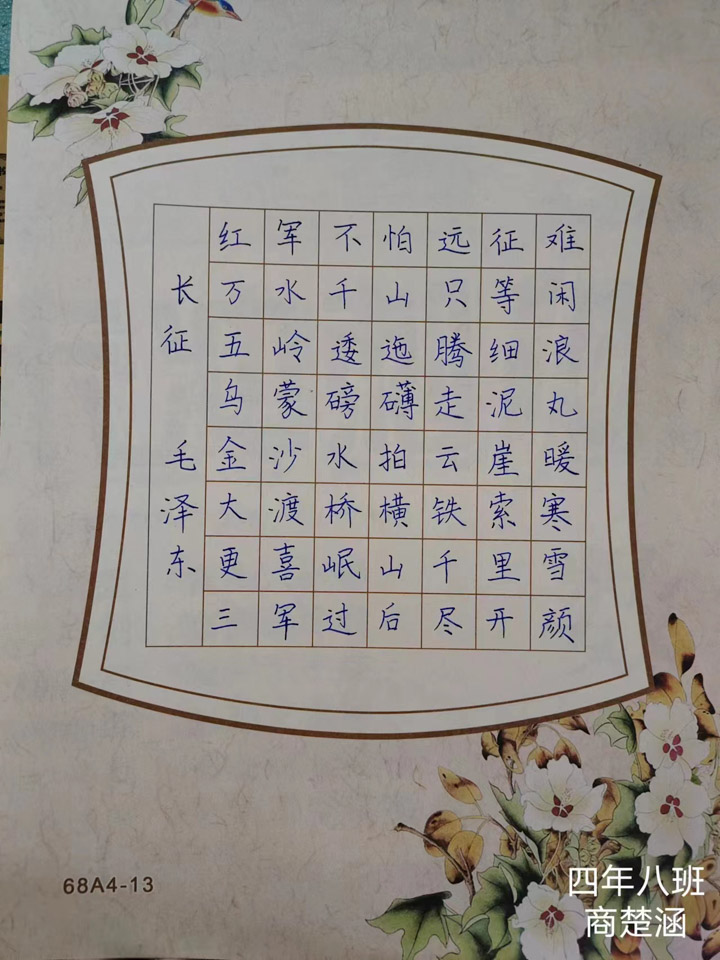 长征
毛泽东
红军不怕远征难
万水千山只等闲
五岭逶迤腾细浪
乌蒙磅礴走泥丸
金沙水拍云崖暖
大渡桥横铁索寒
更喜岷山千里雪
三军过后尽开颜
68A4-13
四年八班
商楚涵